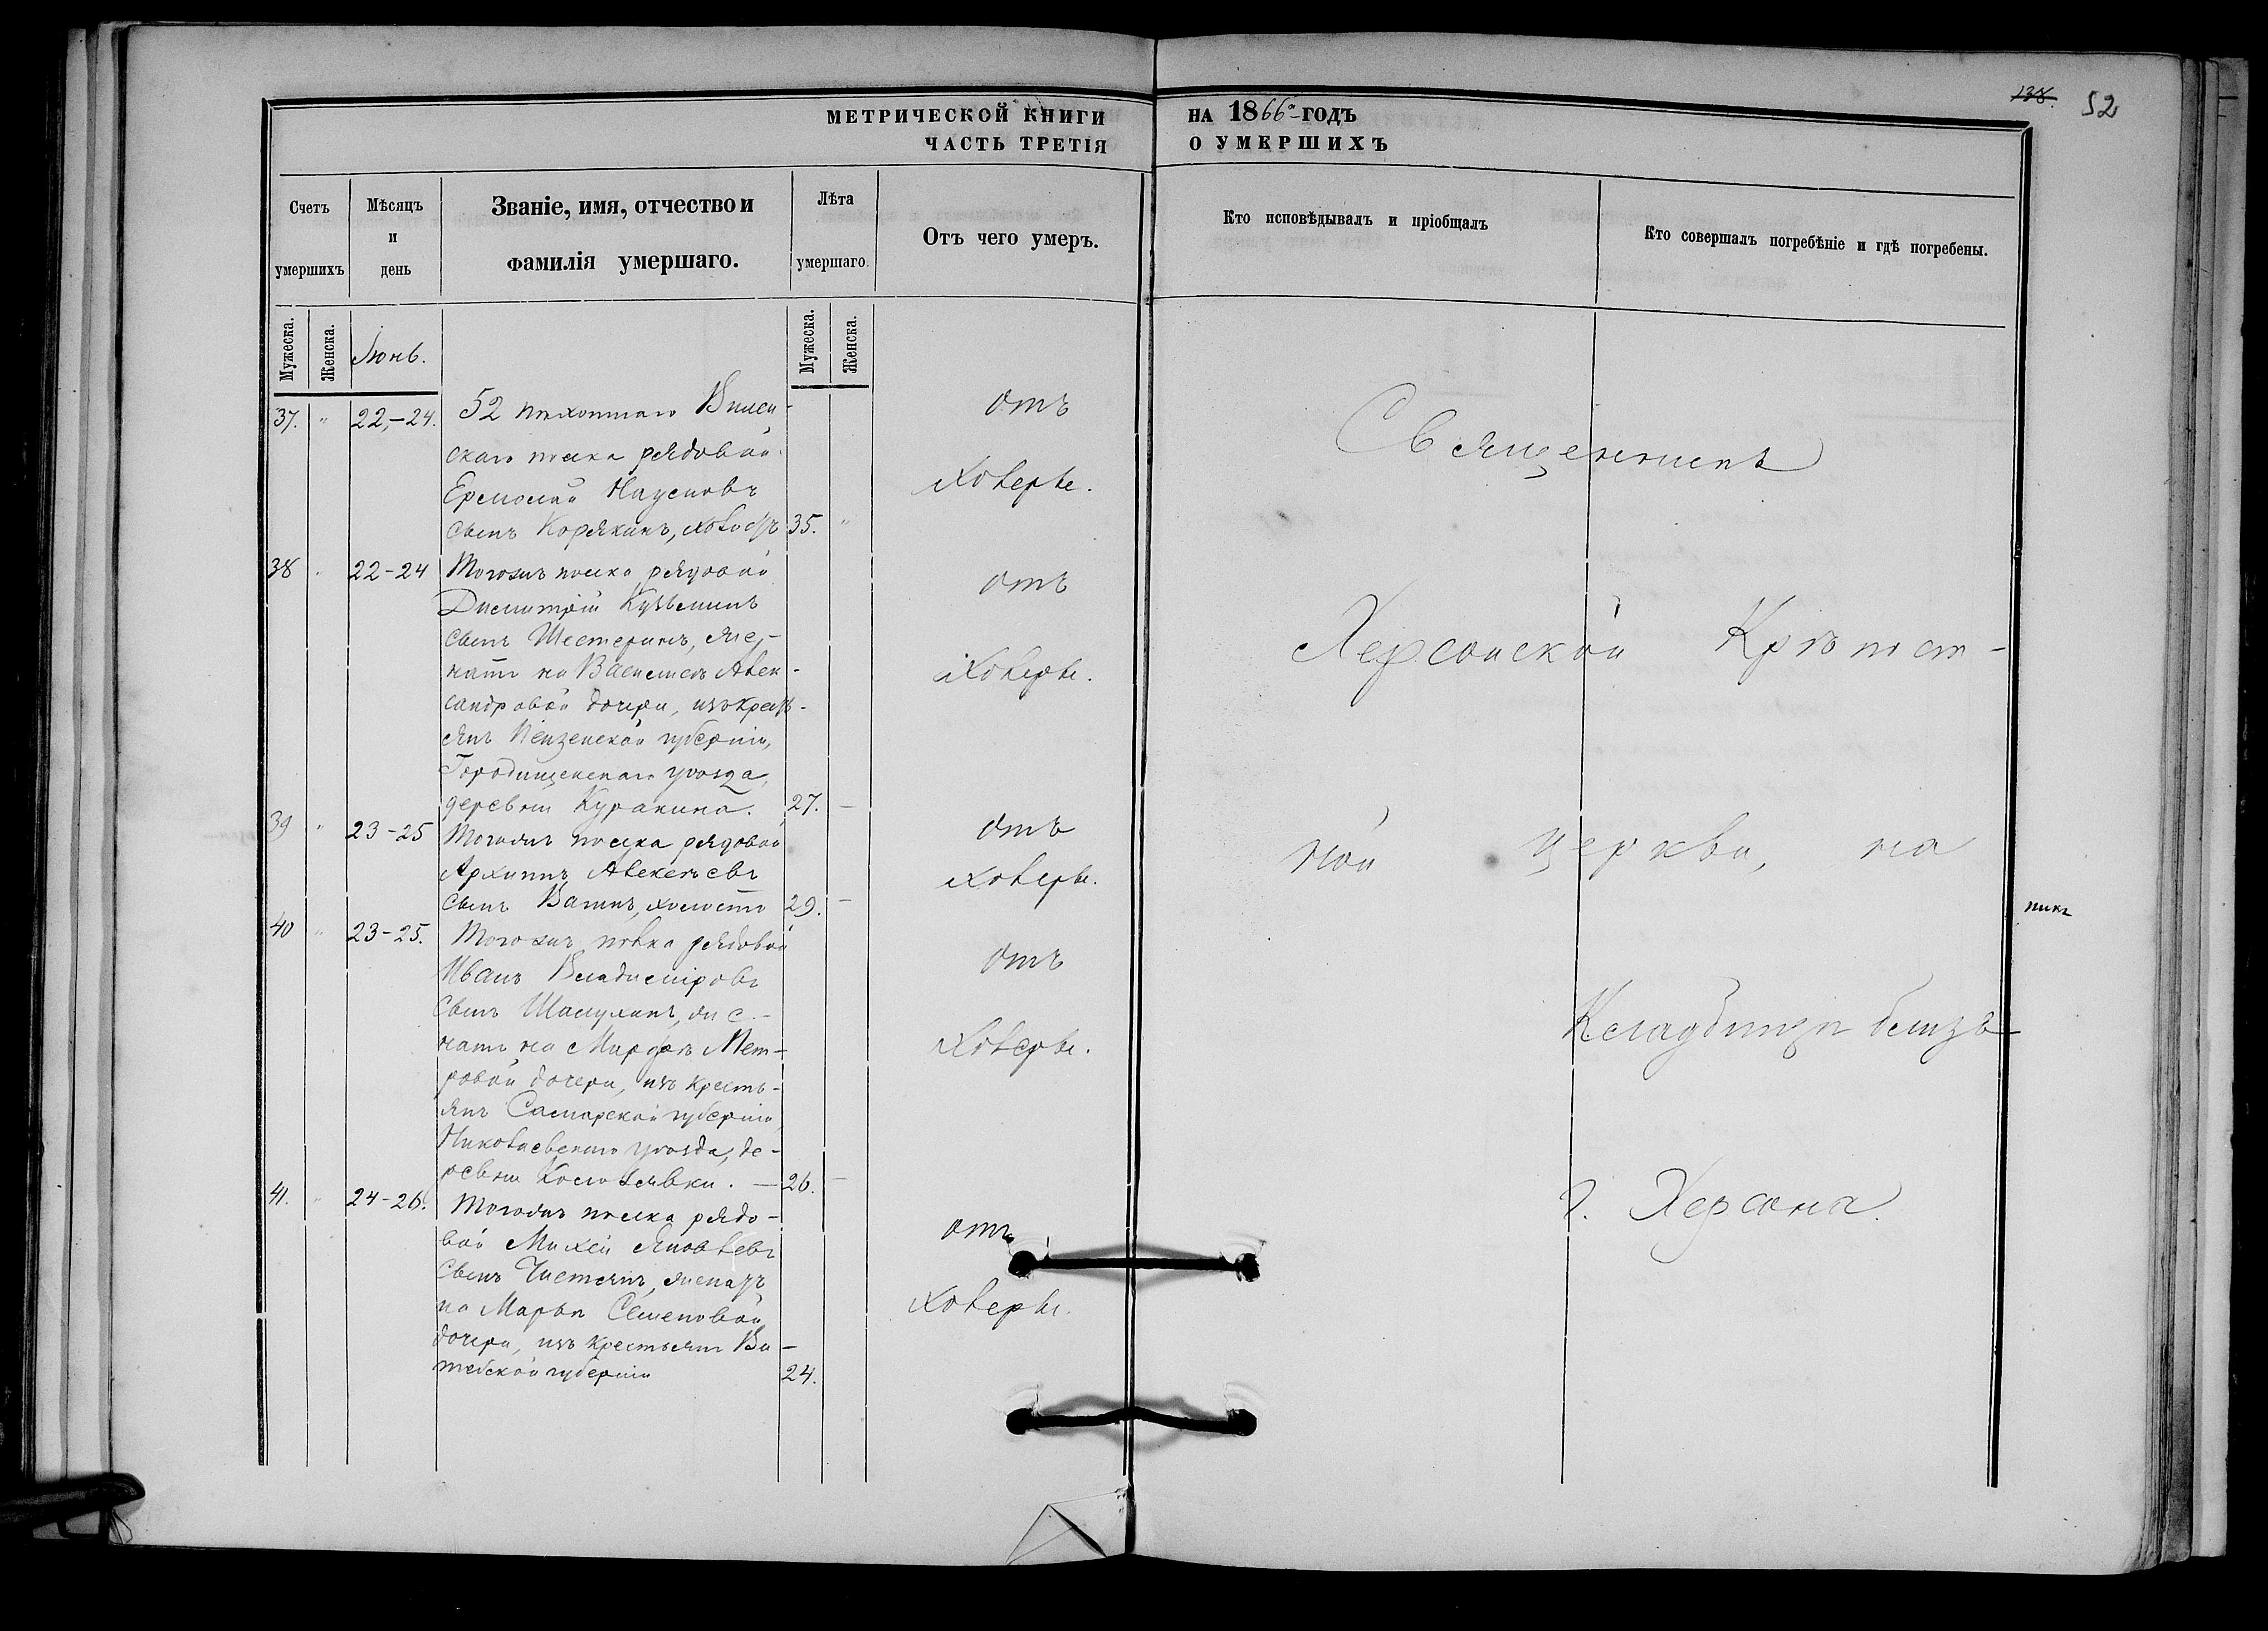 138. 52
МЕТРИЧЕСКОЙ КНИГИ НА 1866й ГОДЪ
ЧАСТЬ ТРЕТІЯ О УМЕРШИХЪ
Счетъ умершихъ
Мѣсяцъ и день
Званіе, имя, отчество и фамилія умершаго.
Лѣта умершаго.
Отъ чего умеръ.
Кто исповѣдывалъ и пріобщалъ
Кто совершалъ погребѣніе и гдѣ погребены.
Мужеска. Женска. Іюнь. Мужеска. Женска.
37. " 22,–24. 52 пѣхотнаго Вилен-
скаго полка рядовой
Ермолай Наумовъ
сынъ Корякинъ, холостъ 35. "
отъ
холеры.
38 " 22–24 Тогожъ полка рядовой
Димитрій Кузьминъ
сынъ Шестеринъ, же-
натъ на Василисѣ Алек-
сандровой дочери, изъ кресть-
янъ Пензенской губерніи,
Городищенскаго уѣзда,
деревни Куракина. 27. –
отъ
холеры.
39 " 23–25 Тогожъ полка рядовой
Архипъ Алексѣевъ
сынъ холостъ 29. –
отъ
холеры.
40 " 23–25. Тогожъ полка рядовой
Иванъ Владиміровъ
сынъ же-
натъ на Марфѣ Пет-
ровой дочери, изъ кресть-
янъ Самарской губерніи
Николаевскаго уѣзда, де-
ревни – 26. –
отъ
холеры.
41. " 24–26. Тогожъ полка рядо-
вой Михей Яковлевъ
сынъ женатъ
на Марьѣ Семеновой
дочери, изъ крестьянъ Ви-
тебской губерніи 24.
отъ
холеры.
Священникъ
Херсонской Крѣпост-
ной церкви, на
Кладбищѣ близъ
г. Херсона.